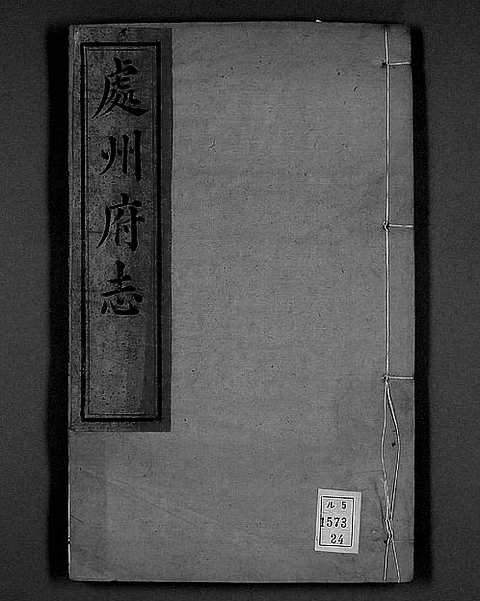 處州府志
ル5
1573
24